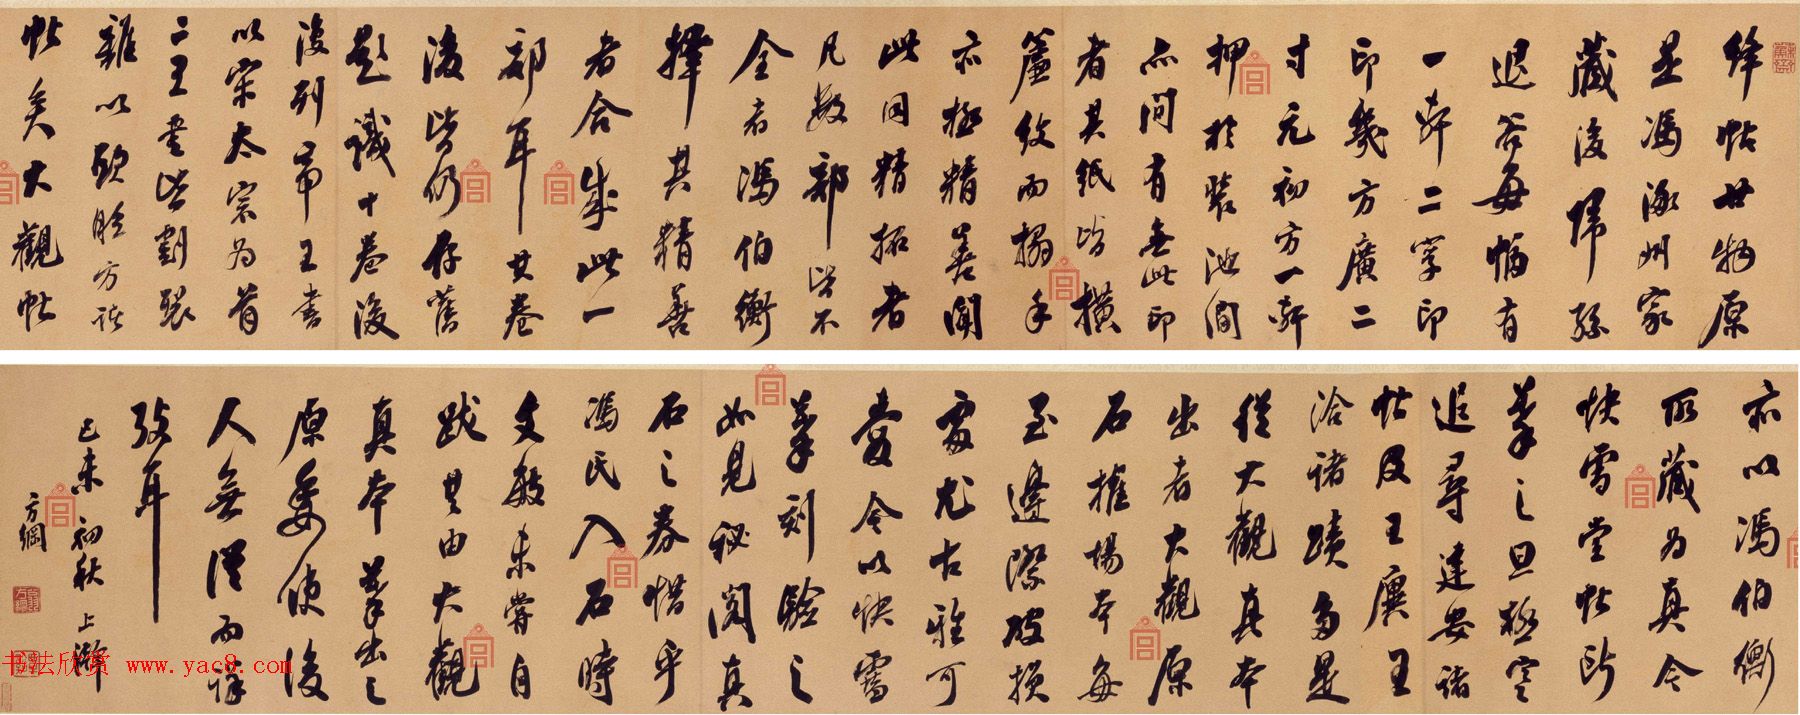 绛帖世物原
是馮涿州家
藏後歸孫
退谷每幅有
一軒二字印
印幾方廣二
寸元初方一軒
押於裝池間
亦間有無此印
者其紙皆橫
簾紋而搨手
亦極精善聞
此同精拓者
凡數部皆不
全者馮伯衡
擇其精善
者合成此一
部耳其卷
後皆仍存舊
題識十卷後
後列帝王書
以宋太宗為首
二王書皆割裂
雖以歐臨方該
帖矣大觀帖
亦以馮伯衡
所藏為真今
快雪堂帖所
摹之旦極寒
追尋建安諸
帖及王廙王
洽諸蹟多是
從大觀真本
出者大觀原
石搉場本每
至邊際破損
處尤古雅可
愛今以快雪
摹刻驗之
如見秘閣真
石之券惜乎
馮氏入石時
文敏未嘗自
跋其由大觀
真本摹出之
原委使後
人無從而詳
攷耳
己未初秋上澣
方綱
书法欣赏 www.yac8.com